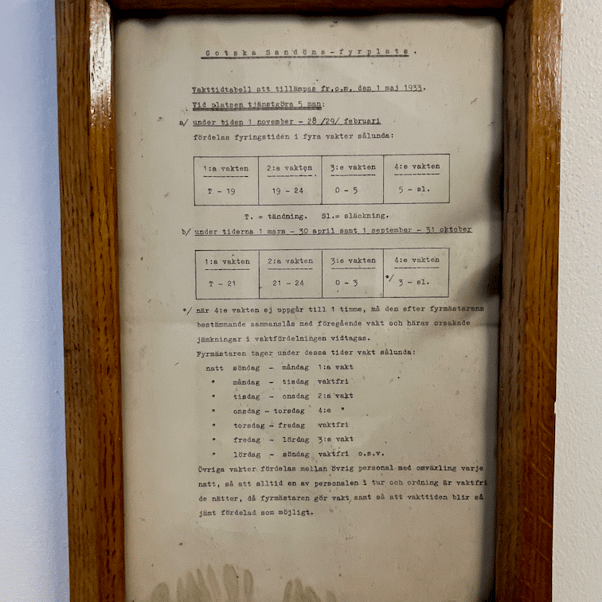 Gotska Sandöns-fyrplats.
Vakttidtabell att tillämpas fr.o.m. den 1 maj 1933.
Vid platsen tjänstgöra 5 man:
a/ under tiden 1 november - 28 /29/ februari
fördelas fyringstiden i fyra vakter sålunda:
1:a vakten 2:a vakten 3:e vakten 4:e vakten
T - 19 19 - 24 0 - 5 5 - sl.
T. = tändning. Sl.= släckning.
b/ under tiderna 1 mars - 30 april samt 1 september - 31 oktober
1:a vakten 2:a vakten 3:e vakten 4:e vakten
T - 21 21 - 24 0 - 3 */ 3 - sl.
*/ när 4:e vakten ej uppgår till 1 timme, må den efter fyrmästarens
bestämmande sammanslås med föregående vakt och härav orsakade
jämkningar i vaktfördelningen vidtagas.
Fyrmästaren tager under dessa tider vakt sålunda:
natt söndag - måndag 1:a vakt
" måndag - tisdag vaktfri
" tisdag - onsdag 2:a vakt
" onsdag - torsdag 4:e "
" torsdag - fredag vaktfri
" fredag - lördag 3:e vakt
" lördag - söndag vaktfri o.s.v.
Övriga vakter fördelas mellan övrig personal med omväxling varje
natt, så att alltid en av personalen i tur och ordning är vaktfri
de nätter, då fyrmästaren gör vakt samt så att vakttiden blir så
jämt fördelad som möjligt.